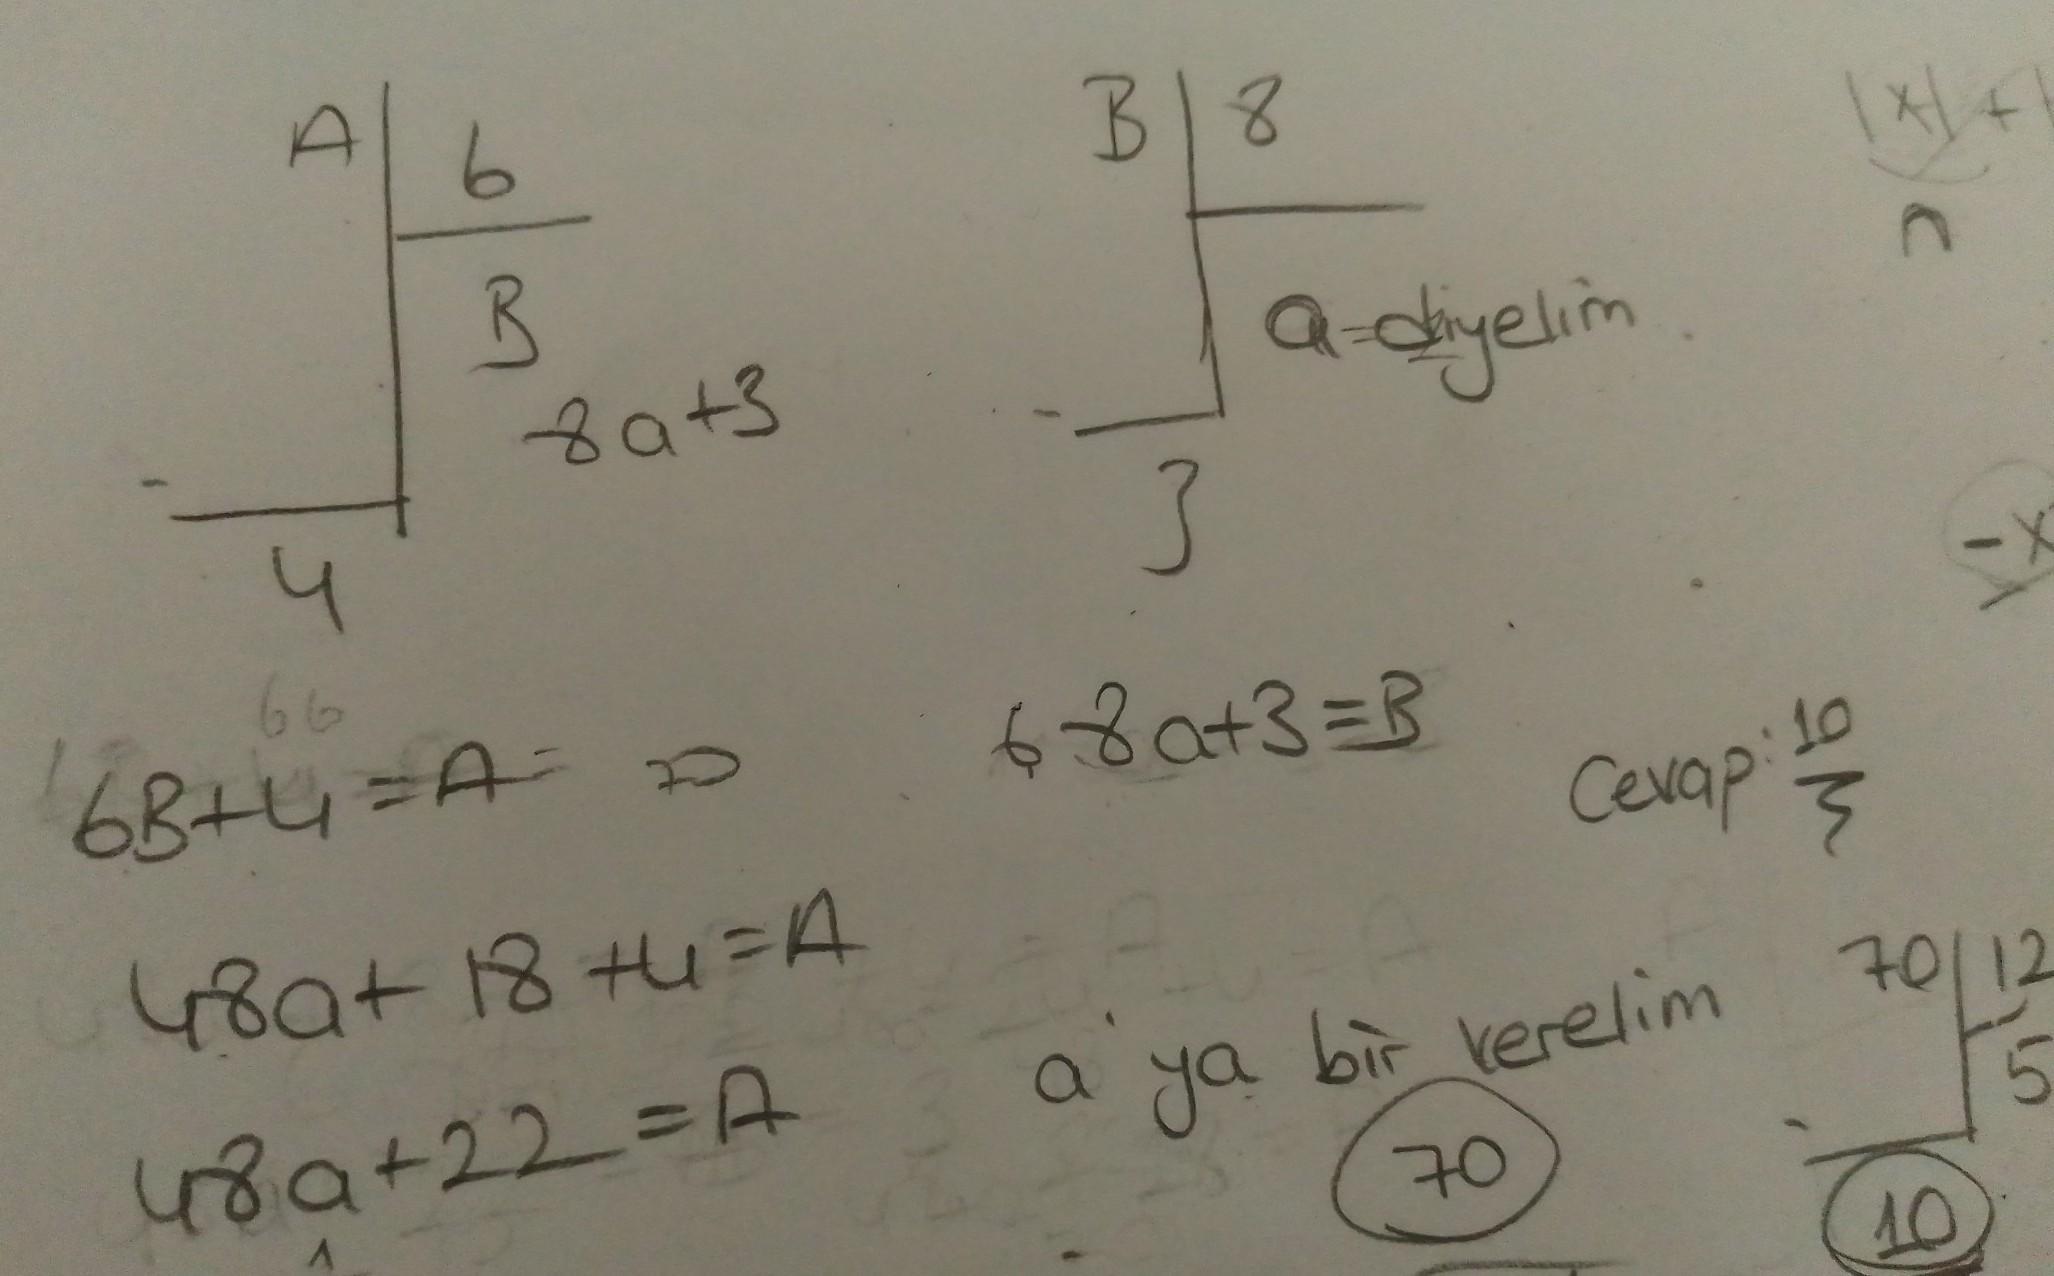 A | 6
B
8a+3
4
B | 8
a=diyelim
3
|x|+|
n
-x
66
6B+4=A= 70
6 8a+3=B
Cevap: 10
48a+18+4=A
48a+22=A
1
a'ya bir verelim
70
70 | 12
5
10